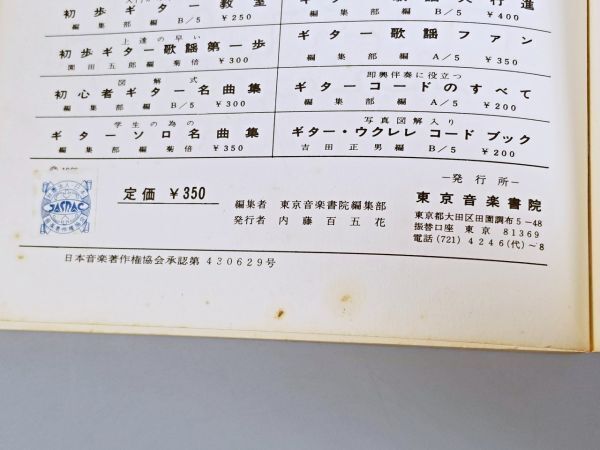 初歩ギター教室
編集部編 B/5 ¥250
上達の早い
初歩ギター歌謡第一歩
園田五郎編 菊倍 ¥300
図解式
初心者ギター名曲集
編集部編 B/5 ¥300
学生の為の
ギターソロ名曲集
編集部編 菊倍 ¥350
行進
編集部編 B/5 ¥400
ギター歌謡ファン
編集部編 A/5 ¥350
即興伴奏に役立つ
ギターコードのすべて
編集部編 A/5 ¥200
写真図解入り
ギター・ウクレレ コード ブック
吉田正男編 B/5 ¥200
JASRAC
定価 ¥350
編集者 東京音楽書院編集部
発行者 内藤百五花
—発行所—
東京音楽書院
東京都大田区田園調布5-48
振替口座 東京 81369
電話(721)4246(代)~8
日本音楽著作権協会承認第430629号